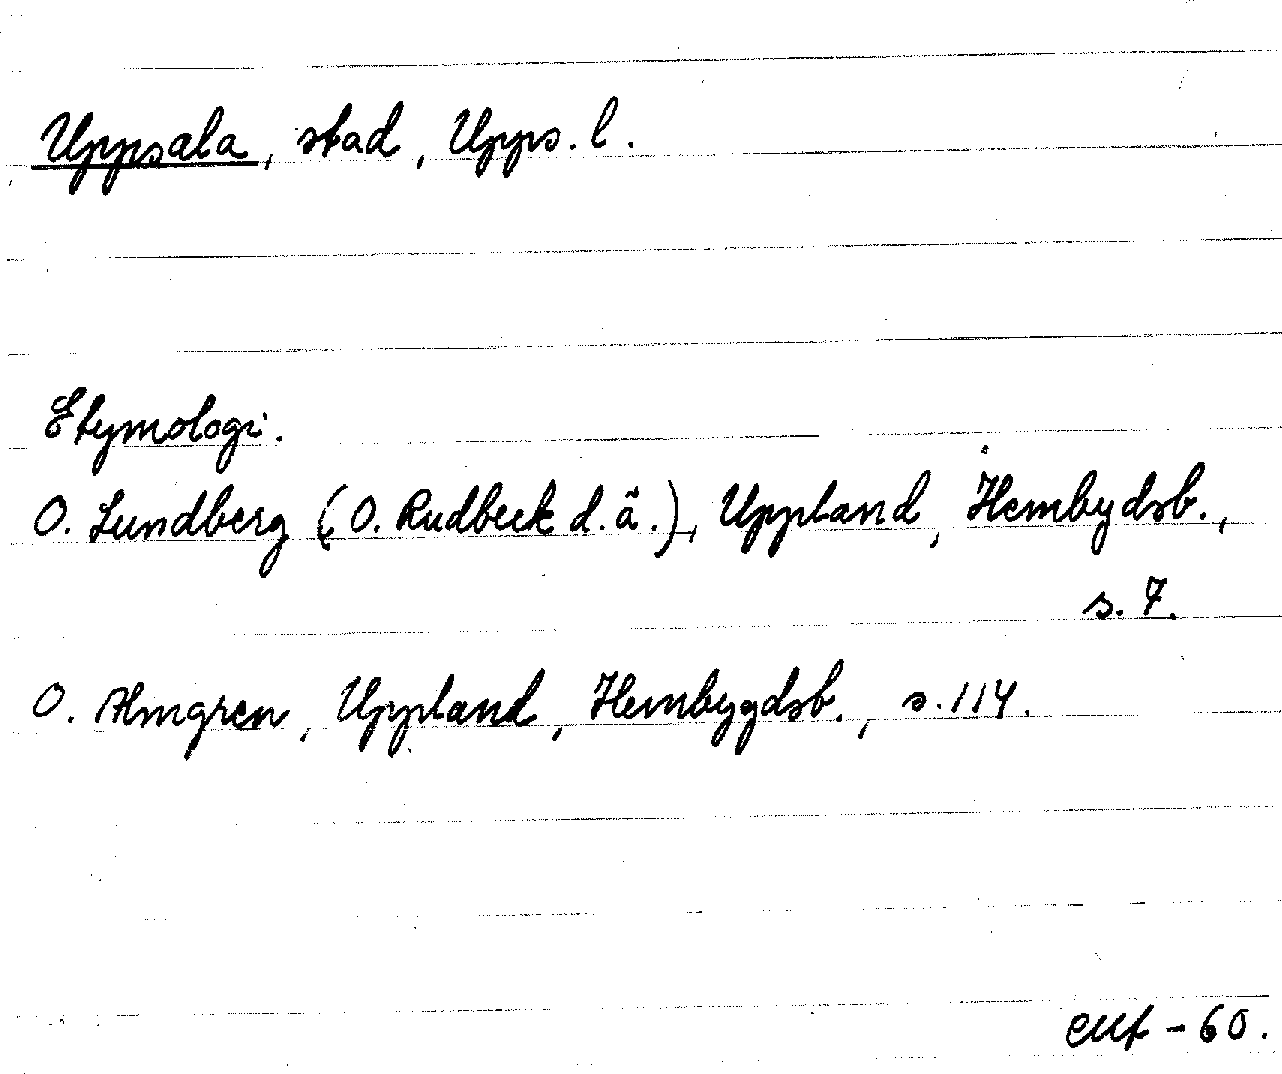 Uppsala, stad, Upps. l.
Etymologi.
O. Lundberg (O. Rudbeck d. ä.), Uppland, Hembydsb.,
s. 7.
O. Almgren, Uppland, Hembygdsb., s. 114.
-60.